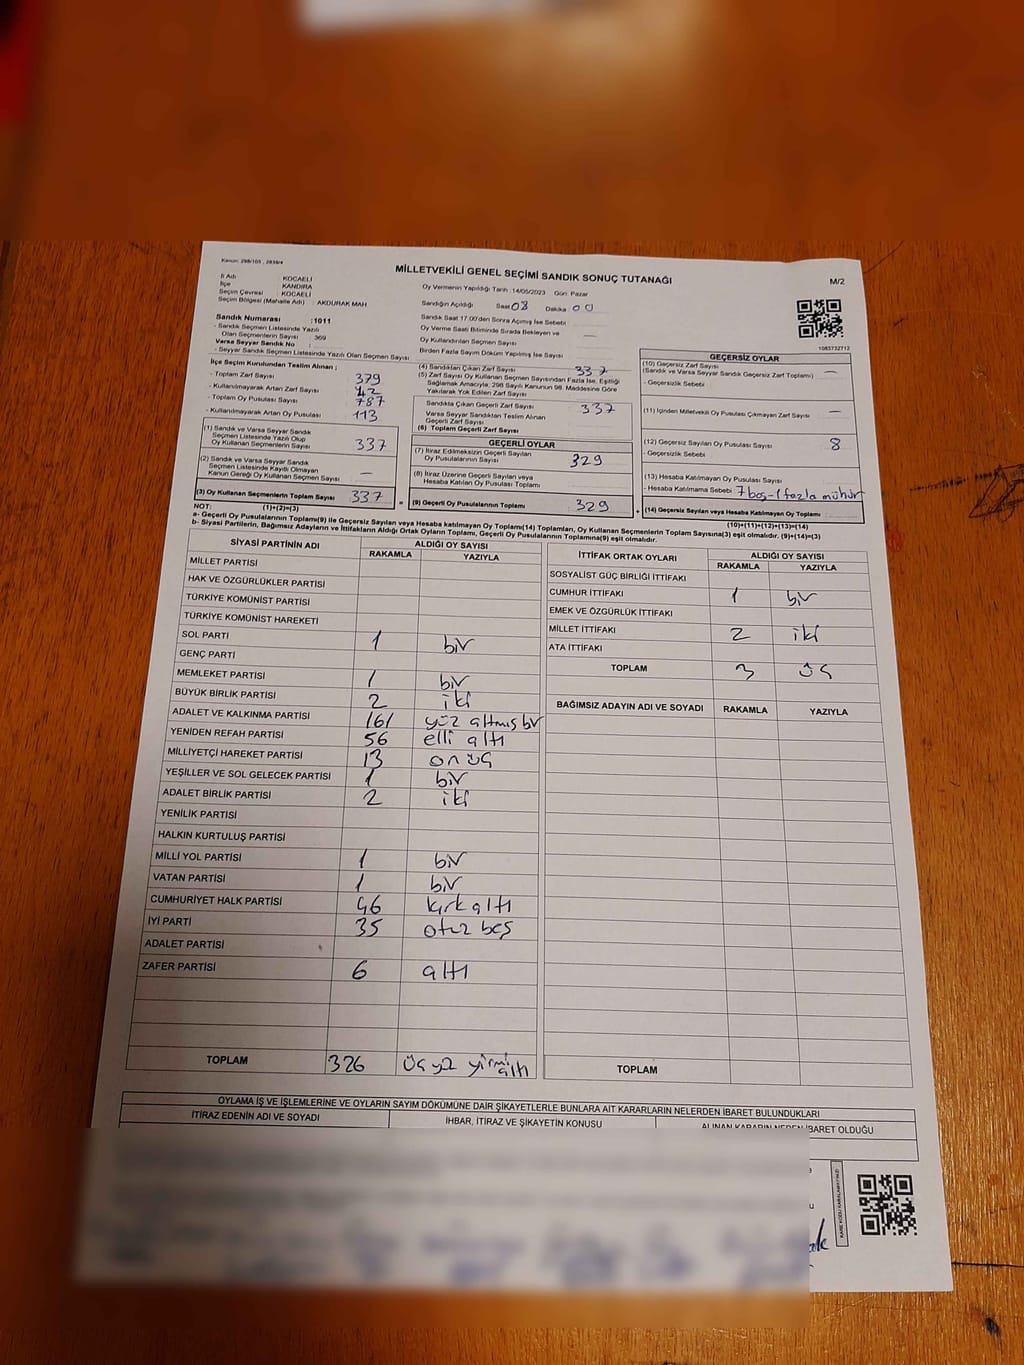 Kanun: 298/105 , 2839/4
MİLLETVEKİLİ GENEL SEÇİMİ SANDIK SONUÇ TUTANAĞI
M/2
İl Adı : KOCAELİ
İlçe : KANDIRA
Seçim Çevresi : KOCAELİ
Seçim Bölgesi (Mahalle Adı) : AKDURAK MAH
Oy Vermenin Yapıldığı Tarih :14/05/2023 Gün: Pazar
Sandığın Açıldığı Saat 08 Dakika 00
Sandık Saat 17.00'den Sonra Açımış İse Sebebi
Oy Verme Saati Bitiminde Sırada Bekleyen ve
Oy Kullandırılan Seçmen Sayısı —
Birden Fazla Sayım Döküm Yapılmış İse Sayısı
1083732712
Sandık Numarası :1011
- Sandık Seçmen Listesinde Yazılı
Olan Seçmenlerin Sayısı : 369
Varsa Seyyar Sandık No :
- Seyyar Sandık Seçmen Listesinde Yazılı Olan Seçmen Sayısı :
İlçe Seçim Kurulundan Teslim Alınan ;
- Toplam Zarf Sayısı 379
- Kullanılmayarak Artan Zarf Sayısı 42
- Toplam Oy Pusulası Sayısı 787
- Kullanılmayarak Artan Oy Pusulası 113
(1) Sandık ve Varsa Seyyar Sandık
Seçmen Listesinde Yazılı Olup
Oy Kullanan Seçmenlerin Sayısı 337
(2) Sandık ve Varsa Seyyar Sandık
Seçmen Listesinde Kayıtlı Olmayan
Kanun Gereği Oy Kullanan Seçmen Sayısı —
(3) Oy Kullanan Seçmenlerin Toplam Sayısı 337
(1)+(2)=(3)
(4) Sandıktan Çıkan Zarf Sayısı 337
(5) Zarf Sayısı Oy Kullanan Seçmen Sayısından Fazla İse, Eşitliği
Sağlamak Amacıyle, 298 Sayılı Kanunun 98. Maddesine Göre
Yakılarak Yok Edilen Zarf Sayısı
Sandıkta Çıkan Geçerli Zarf Sayısı 337
Varsa Seyyar Sandıktan Teslim Alınan
Geçerli Zarf Sayısı
(6) Toplam Geçerli Zarf Sayısı
GEÇERLİ OYLAR
(7) İtiraz Edilmeksizin Geçerli Sayılan
Oy Pusulalarının Sayısı 329
(8) İtiraz Üzerine Geçerli Sayılan veya
Hesaba Katılan Oy Pusulası Toplamı
= (9) Geçerli Oy Pusulalarının Toplamı 329 +
GEÇERSİZ OYLAR
(10) Geçersiz Zarf Sayısı
(Sandık ve Varsa Seyyar Sandık Geçersiz Zarf Toplamı) —
- Geçersizlik Sebebi
(11) İçinden Milletvekili Oy Pusulası Çıkmayan Zarf Sayısı —
(12) Geçersiz Sayılan Oy Pusulası Sayısı 8
- Geçersizlik Sebebi
(13) Hesaba Katılmayan Oy Pusulası Sayısı
- Hesaba Katılmama Sebebi 7 boş-1 fazla mühür
(14) Geçersiz Sayılan veya Hesaba Katılmayan Oy Toplamı
(10)+(11)+(12)+(13)=(14)
NOT:
a- Geçerli Oy Pusulalarının Toplamı(9) ile Geçersiz Sayılan veya Hesaba katılmayan Oy Toplamı(14) Toplamları, Oy Kullanan Seçmenlerin Toplam Sayısına(3) eşit olmalıdır. (9)+(14)=(3)
b- Siyasi Partilerin, Bağımsız Adayların ve İttifakların Aldığı Ortak Oyların Toplamı, Geçerli Oy Pusulalarının Toplamına(9) eşit olmalıdır.
SİYASİ PARTİNİN ADI ALDIĞI OY SAYISI
RAKAMLA YAZIYLA
MİLLET PARTİSİ
HAK VE ÖZGÜRLÜKLER PARTİSİ
TÜRKİYE KOMÜNİST PARTİSİ
TÜRKİYE KOMÜNİST HAREKETİ
SOL PARTİ 1 bir
GENÇ PARTİ
MEMLEKET PARTİSİ 1 bir
BÜYÜK BİRLİK PARTİSİ 2 iki
ADALET VE KALKINMA PARTİSİ 161 yüz altmış bir
YENİDEN REFAH PARTİSİ 56 elli altı
MİLLİYETÇİ HAREKET PARTİSİ 13 on üç
YEŞİLLER VE SOL GELECEK PARTİSİ 1 bir
ADALET BİRLİK PARTİSİ 2 iki
YENİLİK PARTİSİ
HALKIN KURTULUŞ PARTİSİ
MİLLİ YOL PARTİSİ 1 bir
VATAN PARTİSİ 1 bir
CUMHURİYET HALK PARTİSİ 46 kırk altı
İYİ PARTİ 35 otuz beş
ADALET PARTİSİ
ZAFER PARTİSİ 6 altı
TOPLAM 326 üç yüz yirmi altı
İTTİFAK ORTAK OYLARI ALDIĞI OY SAYISI
RAKAMLA YAZIYLA
SOSYALİST GÜÇ BİRLİĞİ İTTİFAKI
CUMHUR İTTİFAKI 1 bir
EMEK VE ÖZGÜRLÜK İTTİFAKI
MİLLET İTTİFAKI 2 iki
ATA İTTİFAKI
TOPLAM 3 üç
BAĞIMSIZ ADAYIN ADI VE SOYADI RAKAMLA YAZIYLA
TOPLAM
OYLAMA İŞ VE İŞLEMLERİNE VE OYLARIN SAYIM DÖKÜMÜNE DAİR ŞİKAYETLERLE BUNLARA AİT KARARLARIN NELERDEN İBARET BULUNDUKLARI
İTİRAZ EDENİN ADI VE SOYADI İHBAR, İTİRAZ VE ŞİKAYETİN KONUSU ALINAN KARARIN NEDEN İBARET OLDUĞU